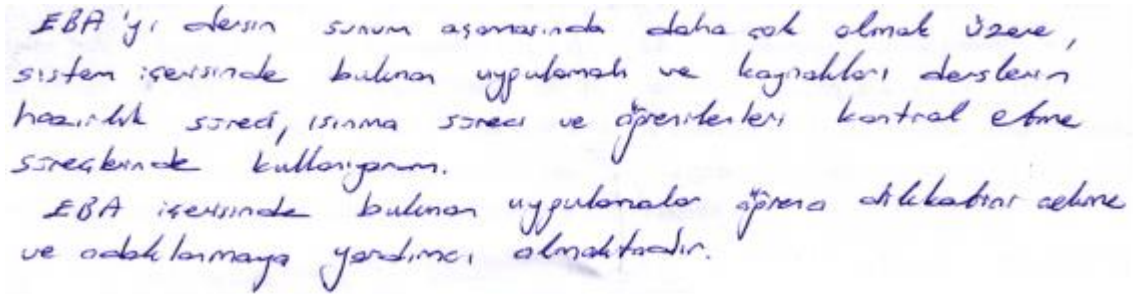 EBA'yı dersin sunum aşamasında daha çok olmak üzere,
sistem içerisinde bulunan uygulamalı ve kaynakları derslerin
hazırlık süreci, ısınma süreci ve öğrenilenleri kontrol etme
süreçlerinde kullanıyorum.
EBA içerisinde bulunan uygulamalar öğrenci dikkatini çekme
ve odaklanmaya yardımcı olmaktadır.